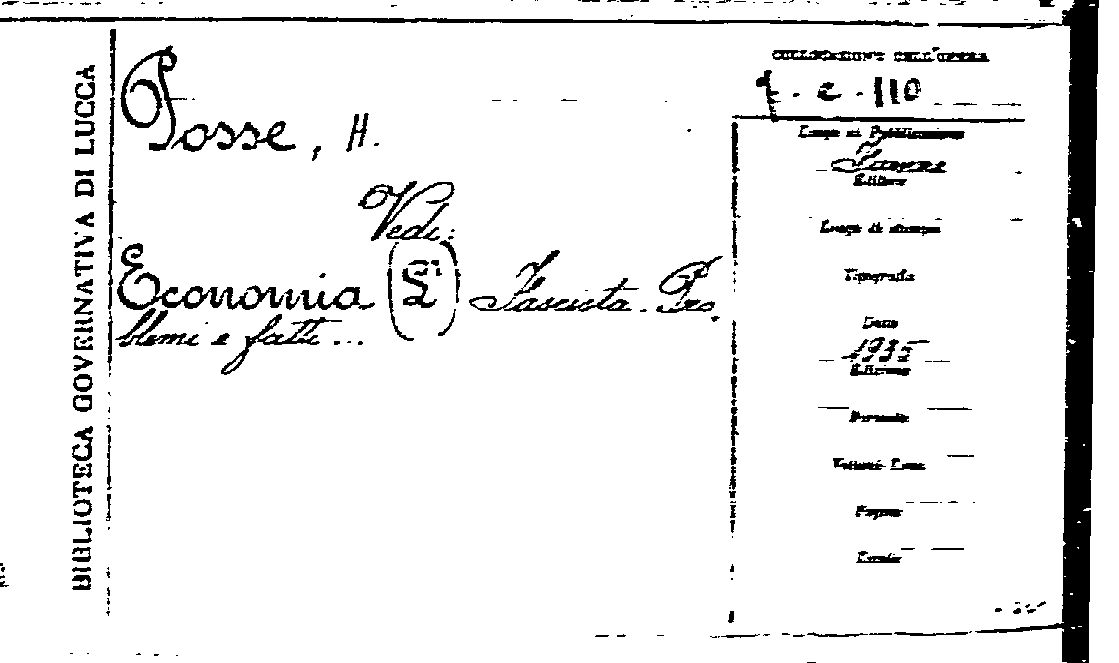 BIBLIOTECA GOVERNATIVA DI LUCCA
Posse, H.
Vedi:
Economia (L') Fascista. Pro.
blemi e fatti ...
COLLOCAZIONE DELL'OPERA
c. 110
Luogo di Pubblicazione
Editore
Luogo di stampa
Tipografia
Data
1935
Edizione
Formato
Volumi
Pagine